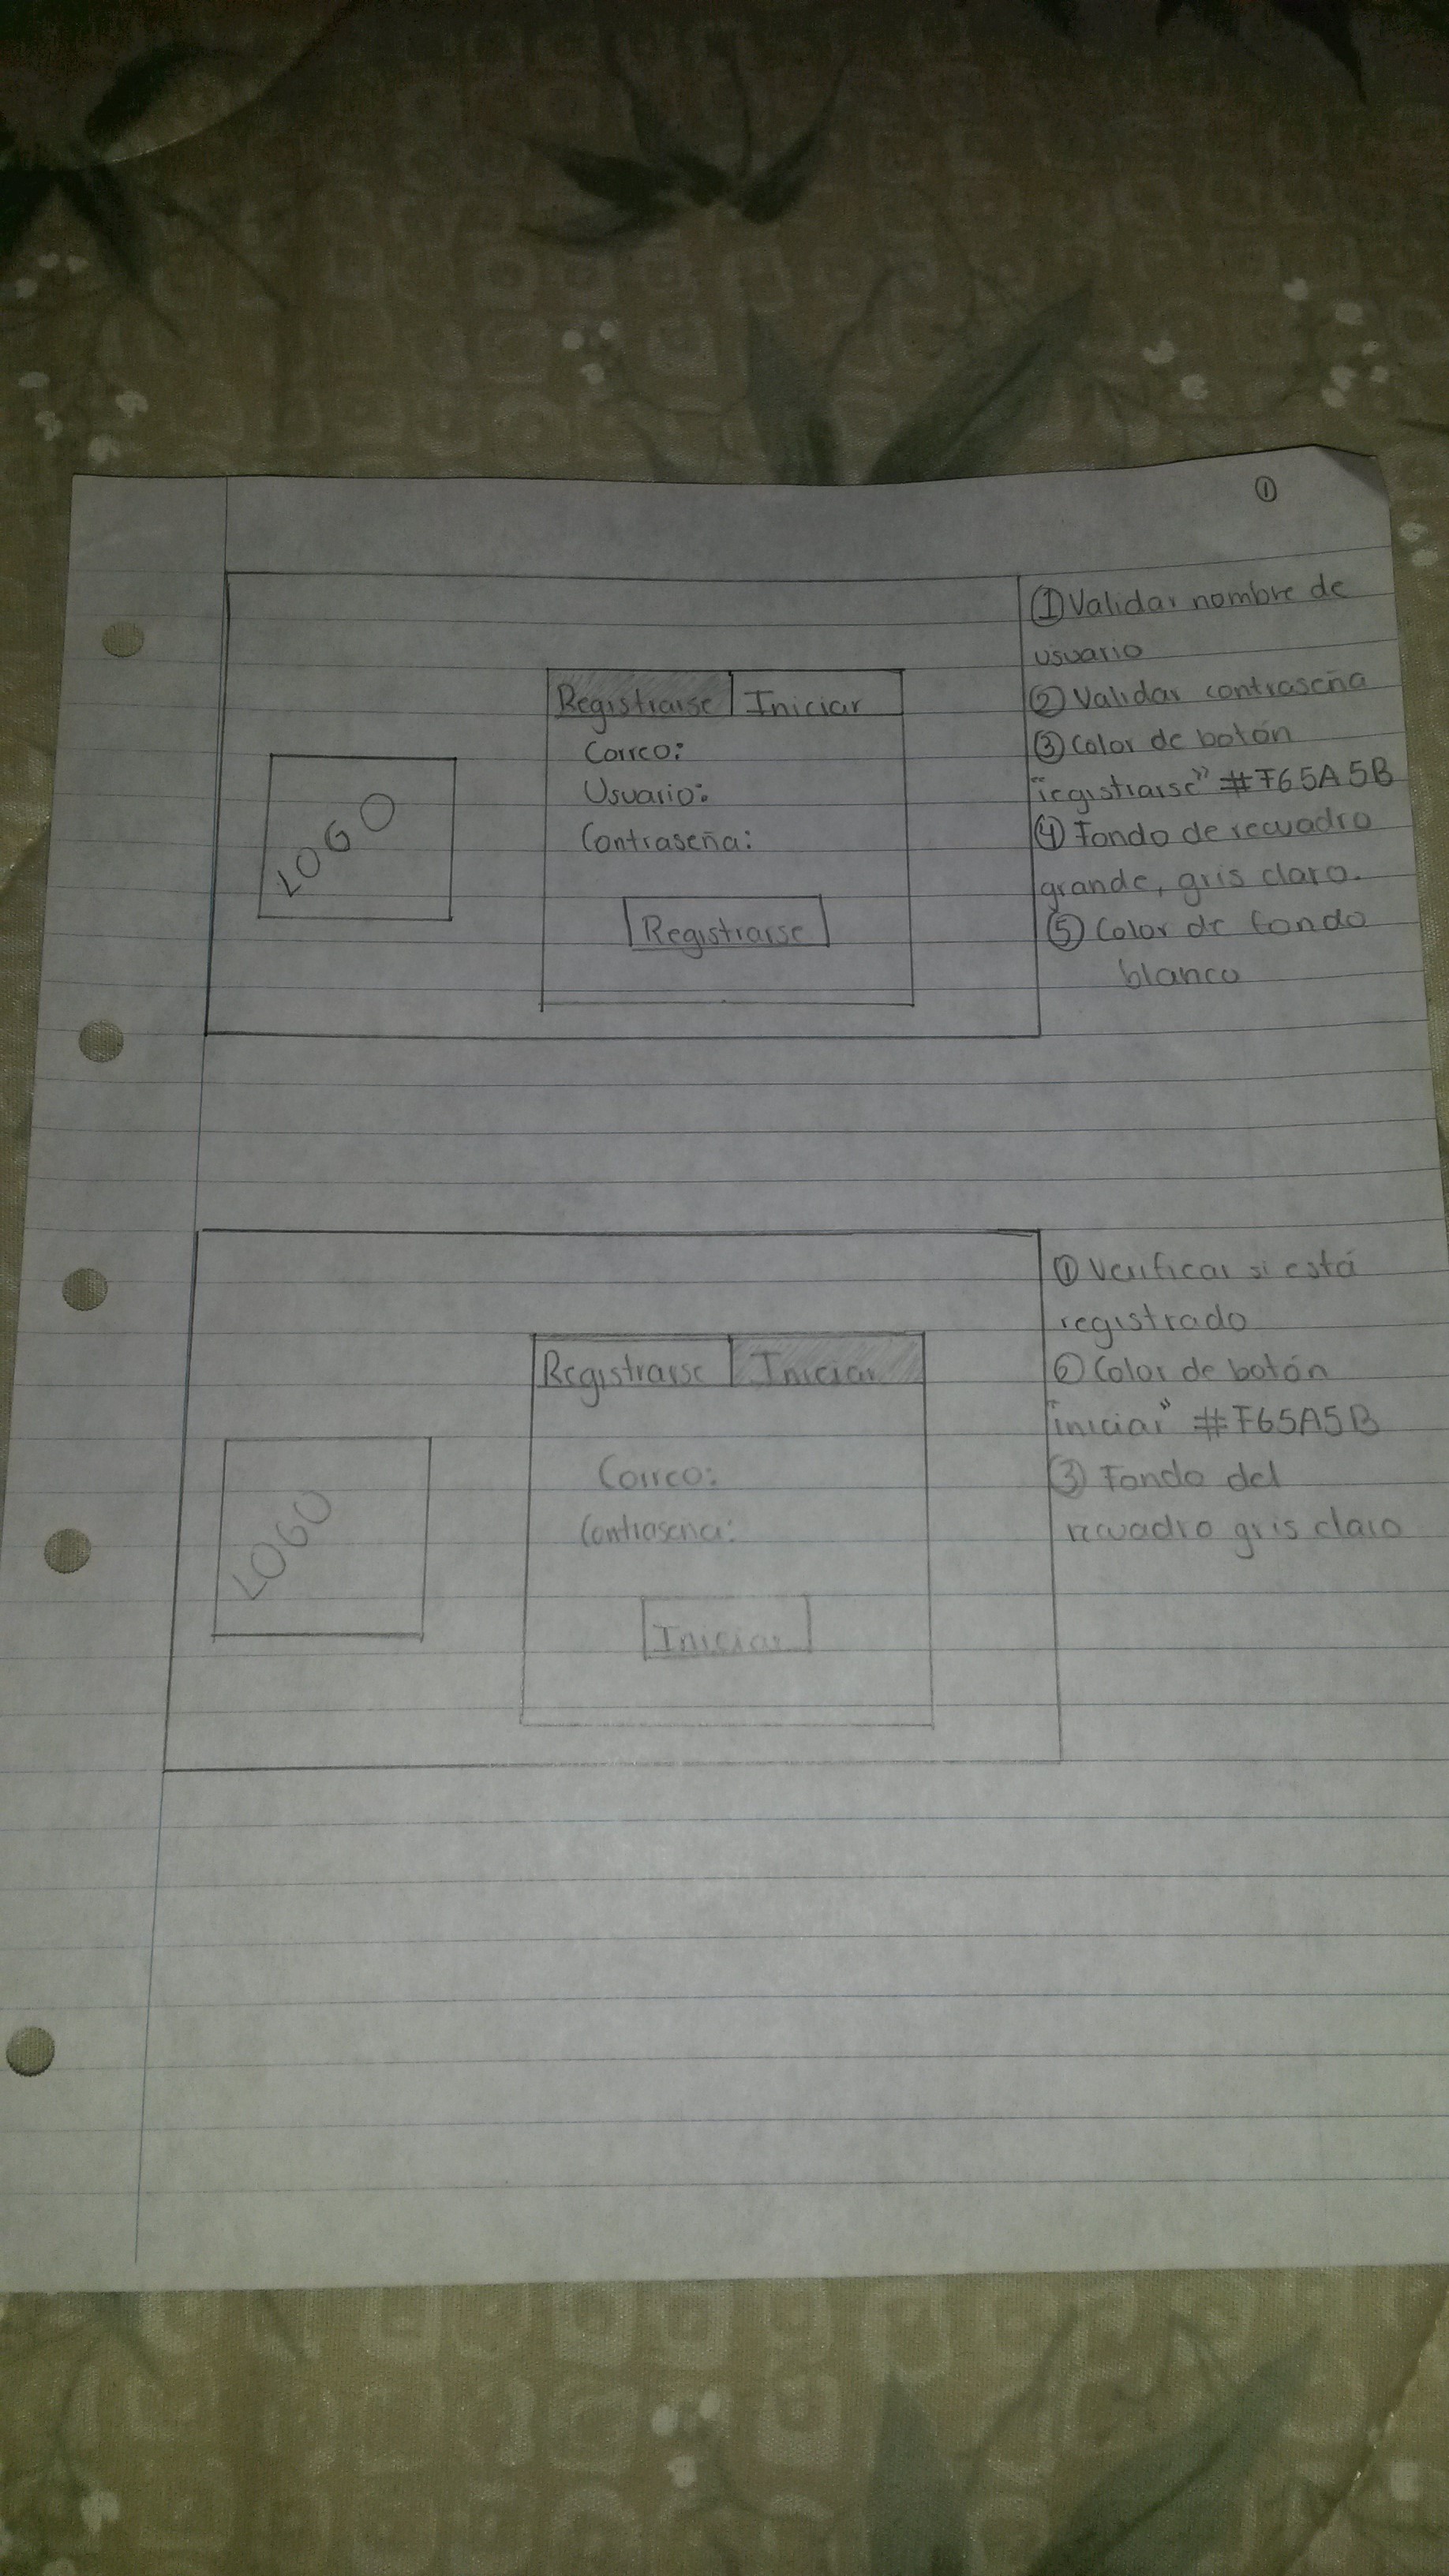 ①
Registrarse Iniciar
Correo:
Usuario:
Contraseña:
Registrarse
LOGO
① Validar nombre de
usuario
② Validar contraseña
③ Color de botón
"registrarse" #F65A5B
④ Fondo de recuadro
grande, gris claro.
⑤ Color de fondo
blanco
Registrarse Iniciar
Correo:
Contrasena:
Iniciar
LOGO
① Verificar si está
registrado
② Color de botón
"iniciar" #F65A5B
③ Fondo del
recuadro gris claro